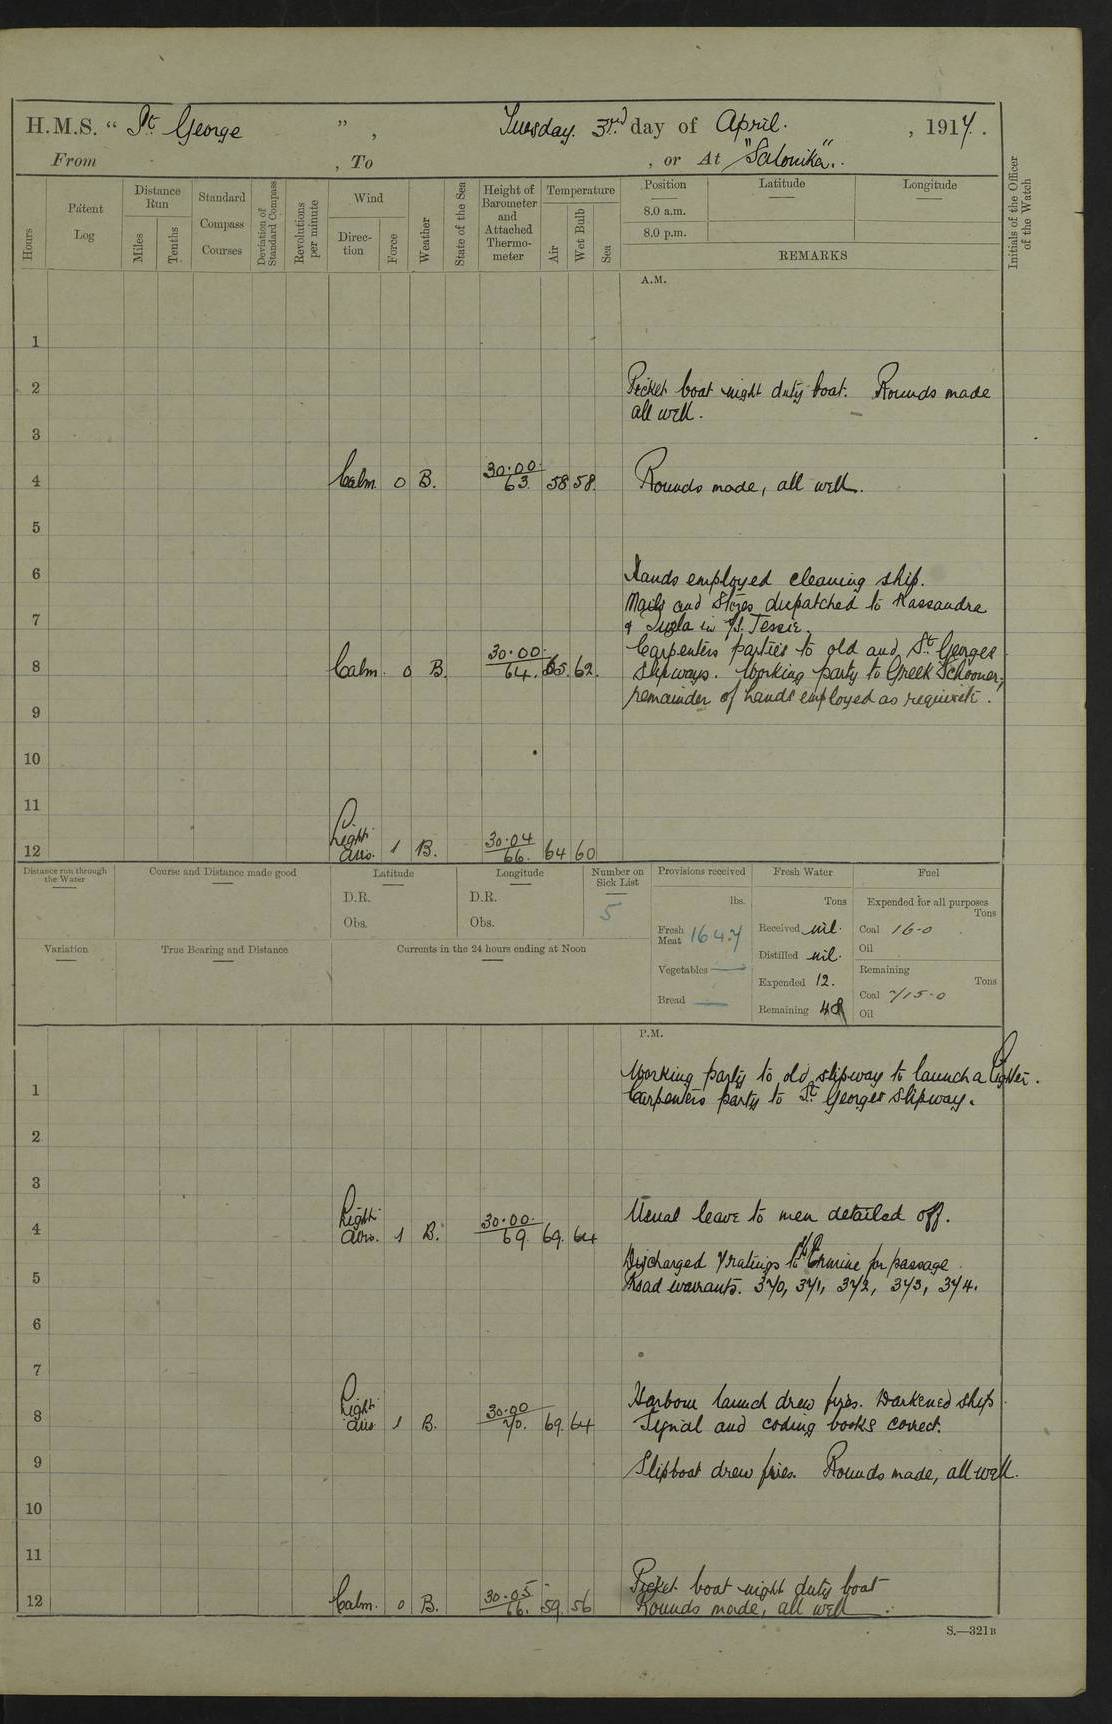 H.M.S. “ St. George ” , Tuesday. 3rd day of April. , 1917.
From , To , or At "Salonika".
Hours
Patent Log
Distance Run
Miles
Tenths
Standard Compass Courses
Deviation of Standard Compass
Revolutions per minute
Wind
Direction
Force
Weather
State of the Sea
Height of Barometer and Attached Thermometer
Temperature
Air
Wet Bulb
Sea
Position
Latitude
Longitude
8.0 a.m.
8.0 p.m.
REMARKS
Initials of the Officer of the Watch
A.M.
1
2 Picket boat night duty boat. Rounds made
all well.
3
4 Calm. 0 B. 30.00. 63. 58 58. Rounds made, all well.
5
6 Hands employed cleaning ship.
Mails and Stores dispatched to Kassandra
7 & in Tessie.
Carpenters parties to old and St. Georges
8 Calm. 0 B. 30.00. 64. 65. 62. slipways. Working party to Greek Schooner,
9 remainder of hands employed as requisite.
10
11
12 Light airs. 1 B. 30.04 66. 64 60
Distance run through the Water
Course and Distance made good
Latitude
D.R.
Obs.
Longitude
D.R.
Obs.
Number on Sick List
5
Provisions received
lbs.
Fresh Meat 164.7
Vegetables —
Bread —
Fresh Water
Tons
Received nil.
Distilled nil.
Expended 12.
Remaining 48
Fuel
Expended for all purposes
Tons
Coal 16-0
Oil
Remaining
Tons
Coal 715-0
Oil
Variation
True Bearing and Distance
Currents in the 24 hours ending at Noon
P.M.
Working party to old slipway to launch a lighter.
1 Carpenters party to St. Georges slipway.
2
3
4 Light airs. 1 B. 30.00. 69. 69. 64 Usual leave to men detailed off.
Discharged 7 ratings to Ermine for passage
5 Road warrants. 370, 371, 372, 373, 374.
6
7
Harbour launch drew fires. Darkened ship.
8 Light airs 1 B. 30.00 70. 69. 64 Signal and coding books correct.
9 Slipboat drew fires. Rounds made, all well.
10
11
Picket boat night duty boat
12 Calm. 0 B. 30.05 66. 59. 56 Rounds made, all well.
S.—321B